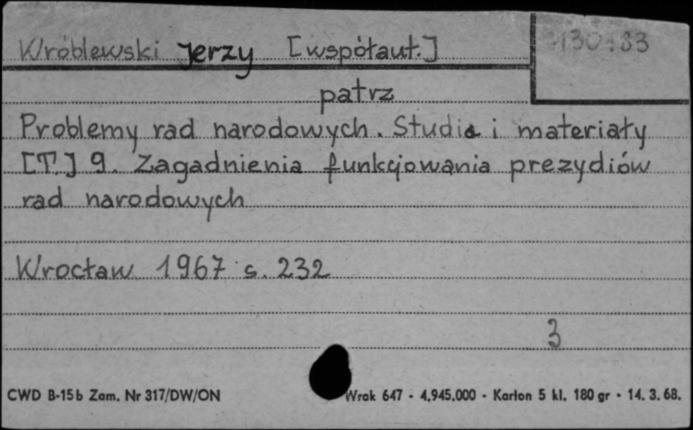 Wróblewski Jerzy [współaut.]
130133
patrz
Problemy rad narodowych. Studia i materiały
[T.] 9. Zagadnienia funkcjonowania prezydiów
rad narodowych
Wrocław 1967 s. 232
3
CWD B-15b Zam. Nr 317/DW/ON Wrak 647 - 4.945.000 - Karton 5 kl. 180 gr - 14. 3. 68.